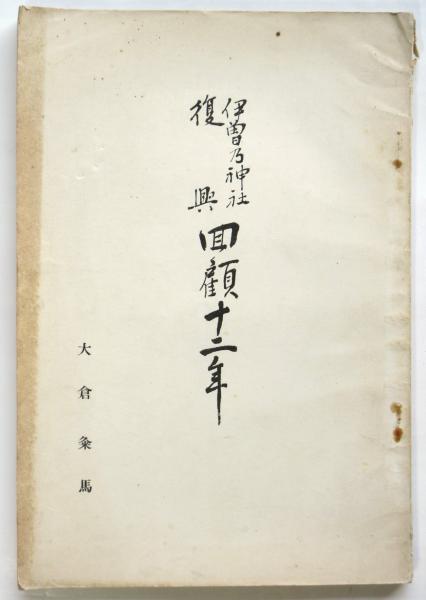 伊曽乃神社
復興
回顧十二年
大倉粂馬